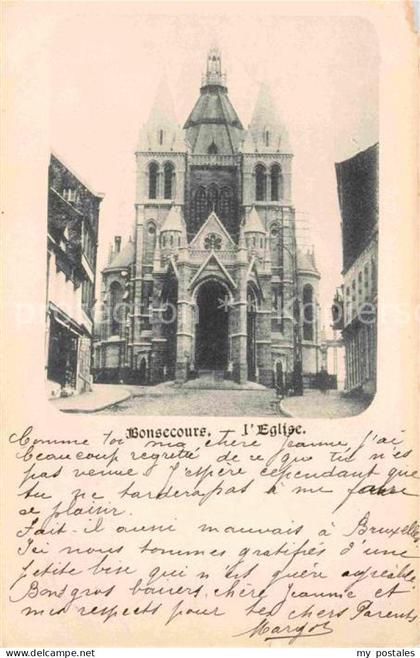 Bonsecours. l'Eglise.
Comme toi ma chère Jeanne, j'ai
beaucoup regretté de ce que tu n'es
pas venue. J'espère cependant que
tu ne tarderas pas à me faire
ce plaisir.
Fait-il aussi mauvais à Bruxelles
Ici nous sommes gratifiés d'une
petite bise qui n'est guère agréable
Bons gros baisers, chère Jeannie et
mes respects pour tes chers Parents
Margot
my postales